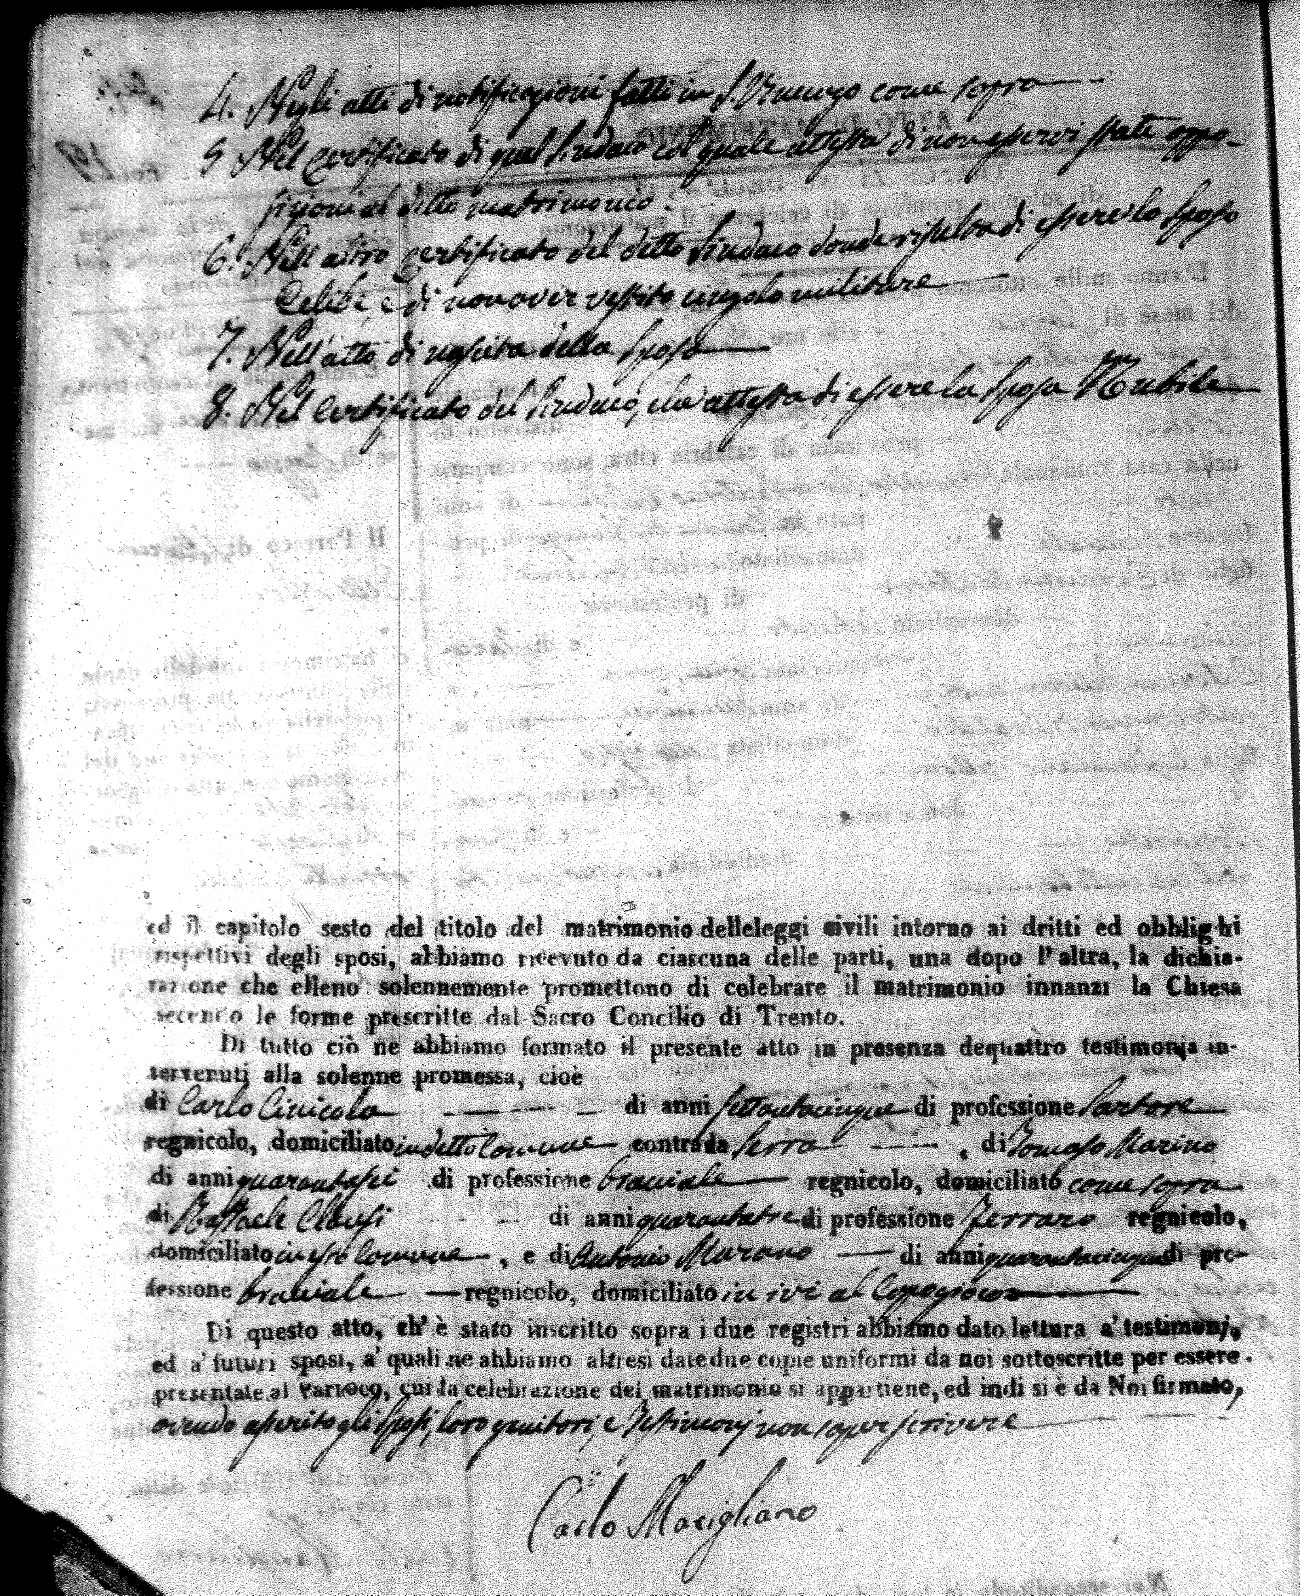 4. Negli atti di notificazioni fatti in S. come sopra
5. Nel Certificato di quel Sindaco col quale attesta di non esservi state oppo-
sizioni al detto matrimonio.
6. Nell'altro Certificato del detto Sindaco donde risulta di essere lo sposo
Celibe e di non aver vestito cingolo militare
7. Nell'atto di nascita della sposa
8. Nel Certificato del Sindaco, che attesta di essere la sposa Nubile
ed il capitolo sesto del titolo del matrimonio delleleggi civili intorno ai dritti ed obblighi
rispettivi degli sposi, abbiamo ricevuto da ciascuna delle parti, una dopo l'altra, la dichia-
razione che elleno solennemente promettono di celebrare il matrimonio innanzi la Chiesa
secondo le forme prescritte dal Sacro Concilio di Trento.
Di tutto ciò ne abbiamo formato il presente atto in presenza dequattro testimonja in-
tervenuti alla solenne promessa, cioè
di Carlo Cinicola di anni settantacinque di professione Sartore
regnicolo, domiciliato in detto Comune contrada Serra, di Tomaso Marino
di anni quarantasei di professione bracciale regnicolo, domiciliato come sopra
di Raffaele di anni quarantatre di professione Ferraro regnicolo,
domiciliato in esso Comune, e di Antonio Marano di anni quarantacinque di pro-
fessione bracciale regnicolo, domiciliato in ivi al
Di questo atto, ch'è stato inscritto sopra i due registri abbiamo dato lettura a' testimonj,
ed a' futuri sposi, a' quali ne abbiamo altresì date due copie uniformi da noi sottoscritte per essere
presentate al Parroco, cui la celebrazione del matrimonio si appartiene, ed indi si è da Noi firmato,
avendo asserito gli sposi, loro genitori, e Testimonj non saper scrivere
Carlo Marigliano